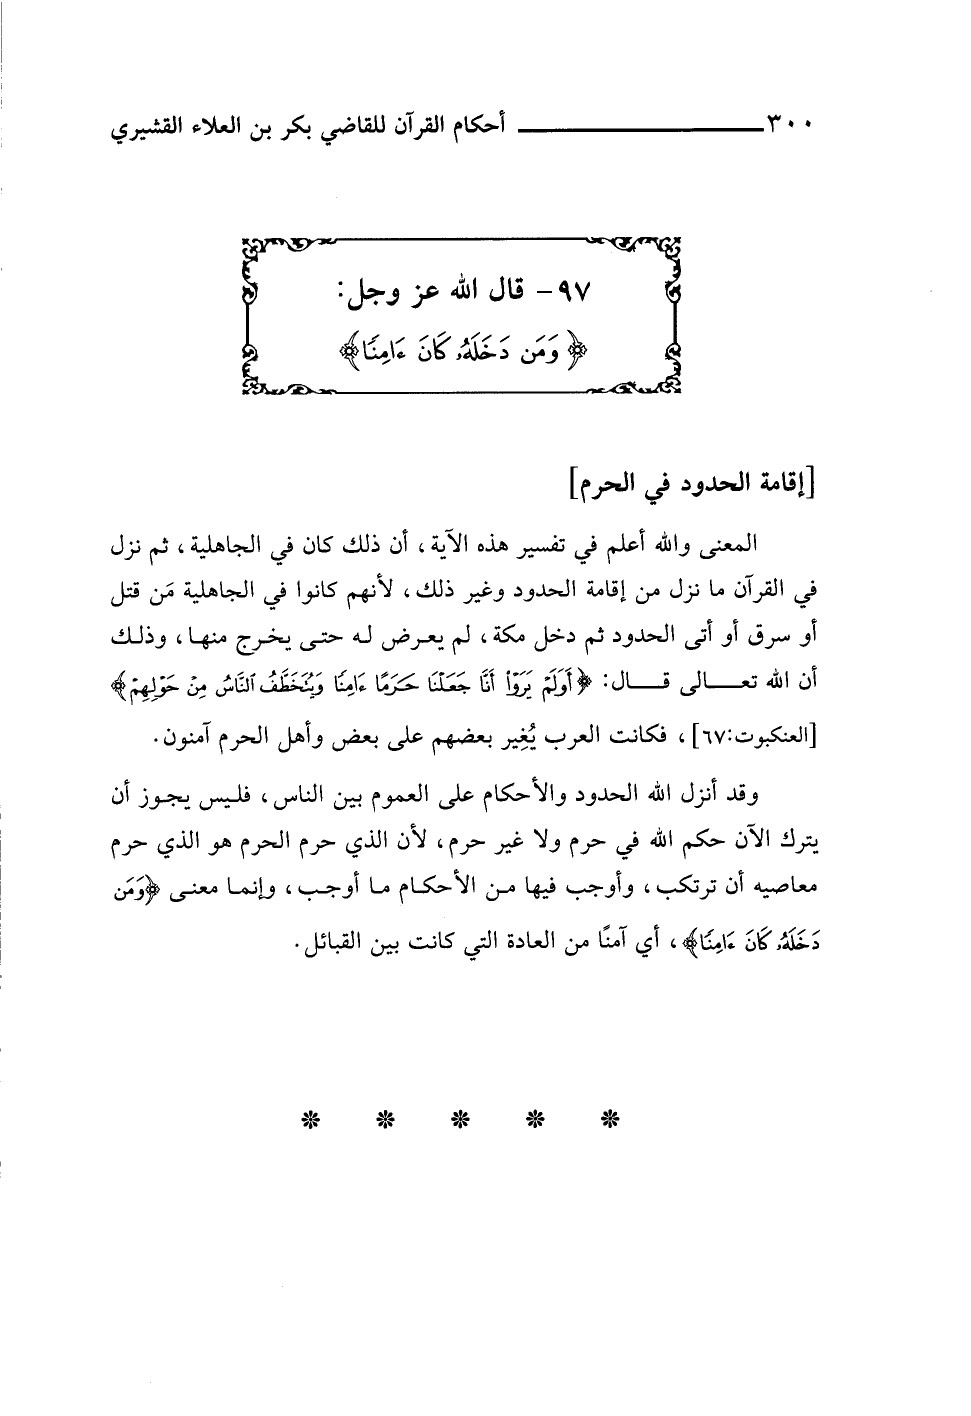 ٣٠٠ أحكام القرآن للقاضي بكر بن العلاء القشيري
٩٧- قال الله عز وجل:
﴿وَمَن دَخَلَهُۥ كَانَ ءَامِنًا﴾
[إقامة الحدود في الحرم]
المعنى والله أعلم في تفسير هذه الآية، أن ذلك كان في الجاهلية، ثم نزل
في القرآن ما نزل من إقامة الحدود وغير ذلك، لأنهم كانوا في الجاهلية مَن قتل
أو سرق أو أتى الحدود ثم دخل مكة، لم يعرض له حتى يخرج منها، وذلك
أن الله تعالى قال: ﴿أَوَلَمْ يَرَوْا۟ أَنَّا جَعَلْنَا حَرَمًا ءَامِنًا وَيُتَخَطَّفُ ٱلنَّاسُ مِنْ حَوْلِهِمْ﴾
[العنكبوت:٦٧]، فكانت العرب يُغِير بعضهم على بعض وأهل الحرم آمنون.
وقد أنزل الله الحدود والأحكام على العموم بين الناس، فليس يجوز أن
يترك الآن حكم الله في حرم ولا غير حرم، لأن الذي حرم الحرم هو الذي حرم
معاصيه أن ترتكب، وأوجب فيها من الأحكام ما أوجب، وإنما معنى ﴿وَمَن
دَخَلَهُۥ كَانَ ءَامِنًا﴾، أي آمنًا من العادة التي كانت بين القبائل.